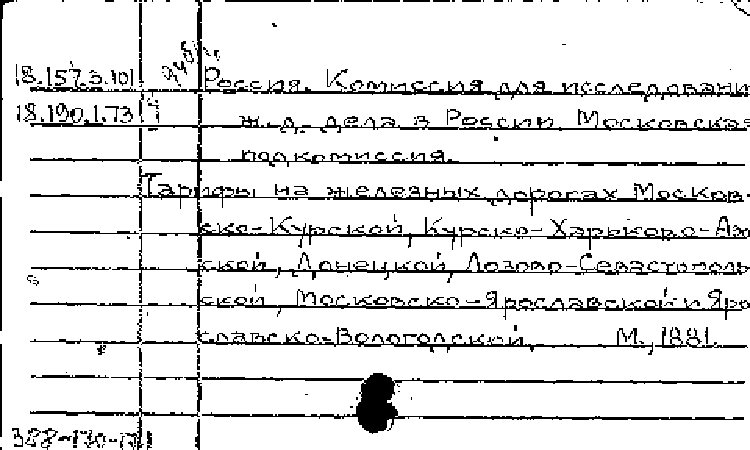 18.157.3.101 дубл. Россия. Комиссия для исследовани
18.190.1.73 ж.д. дела в России. Московская
подкомиссия.
Тарифы на железных дорогах Москов-
ско-Курской, Курско-Харьково-Азо
ской, Донецкой, Лозово-Севастополь
ской, Московско-Ярославской и Яро
славско-Вологодской. М., 1881.